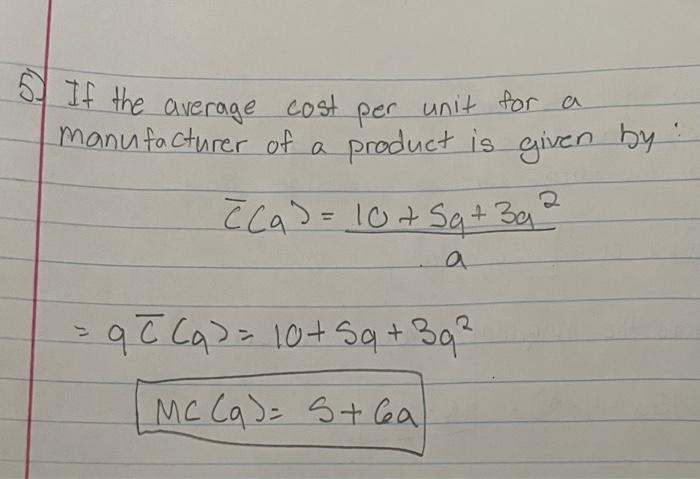 5) If the average cost per unit for a
manufacturer of a product is given by:
c̄(q) = 10 + 5q + 3q²
q
= q c̄(q) = 10 + 5q + 3q²
MC(q) = 5 + 6q